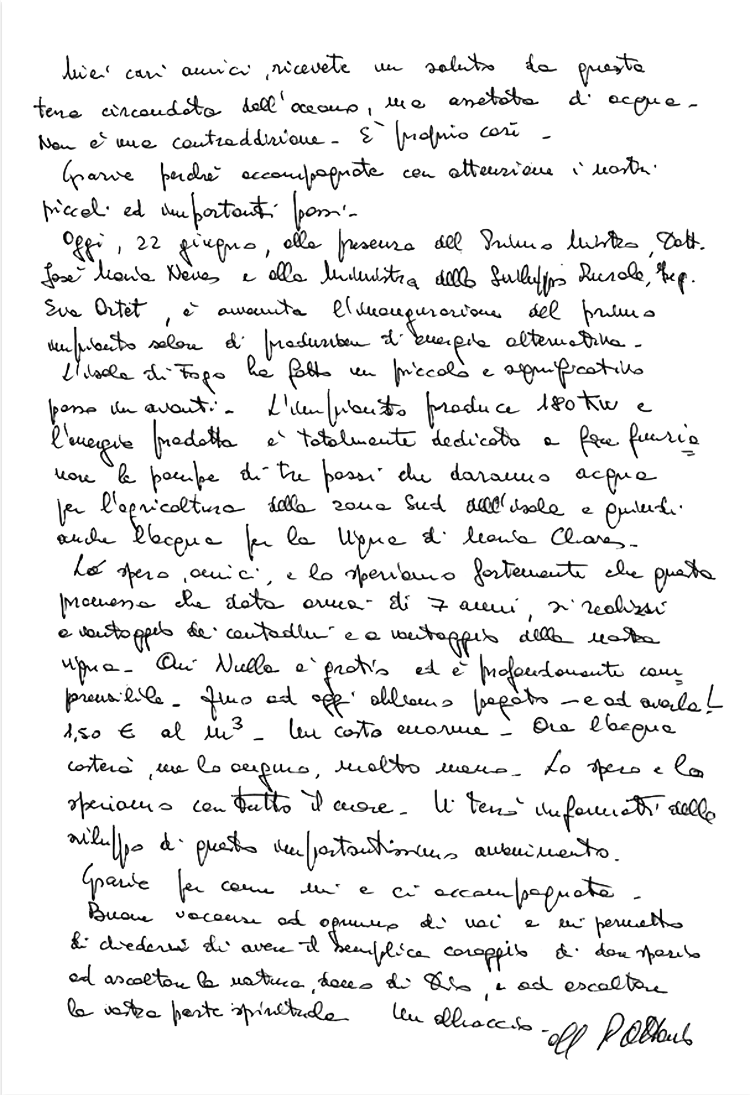 Miei cari amici, ricevete un saluto da questa
terra circondata dall'oceano, ma assetata di acqua -
Non è una contraddizione - È proprio così -
Grazie perchè accompagnate con attenzione i nostri
piccoli ed importanti passi -
Oggi, 22 giugno, alla presenza del Primo Ministro, Dott.
José Maria Neves e alla Ministra dello Sviluppo Rurale, Ing.
Eva Ortet, è avvenuta l'inaugurazione del primo
impianto solare di produzione di energia alternativa -
L'isola di Fogo ha fatto un piccolo e significativo
passo in avanti - L'impianto produce 180 KW e
l'energia prodotta è totalmente dedicata a fare funzio=
nare le pompe di tre pozzi che daranno acqua
per l'agricoltura della zona Sud dell'isola e quindi
anche l'acqua per la Vigna di Maria Chaves -
Lo spero, amici, e lo speriamo fortemente che questa
promessa che data ormai di 7 anni, si realizzi
a vantaggio dei contadini e a vantaggio della nostra
vigna - Qui Nulla è gratis ed è profondamente com=
prensibile - fino ad oggi abbiamo pagato - e ad averla!
1,50 € al m³ - Un costo enorme - Ora l'acqua
costerà, me lo auguro, molto meno - Lo spero e lo
speriamo con tutto il cuore - Vi terrò informati dello
sviluppo di questo importantissimo avvenimento.
Grazie per come mi e ci accompagnate -
Buone vacanze ad ognuno di voi e mi permetto
di chiedervi di avere il semplice coraggio di dare spazio
ad ascoltare la natura, dono di Dio, e ad ascoltare
la vostra parte spirituale Un abbraccio -